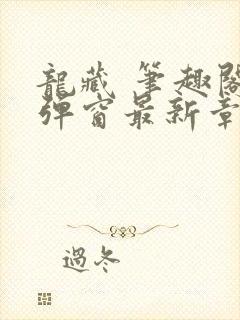 龍藏 筆趣閣
彈窗最新章
過冬